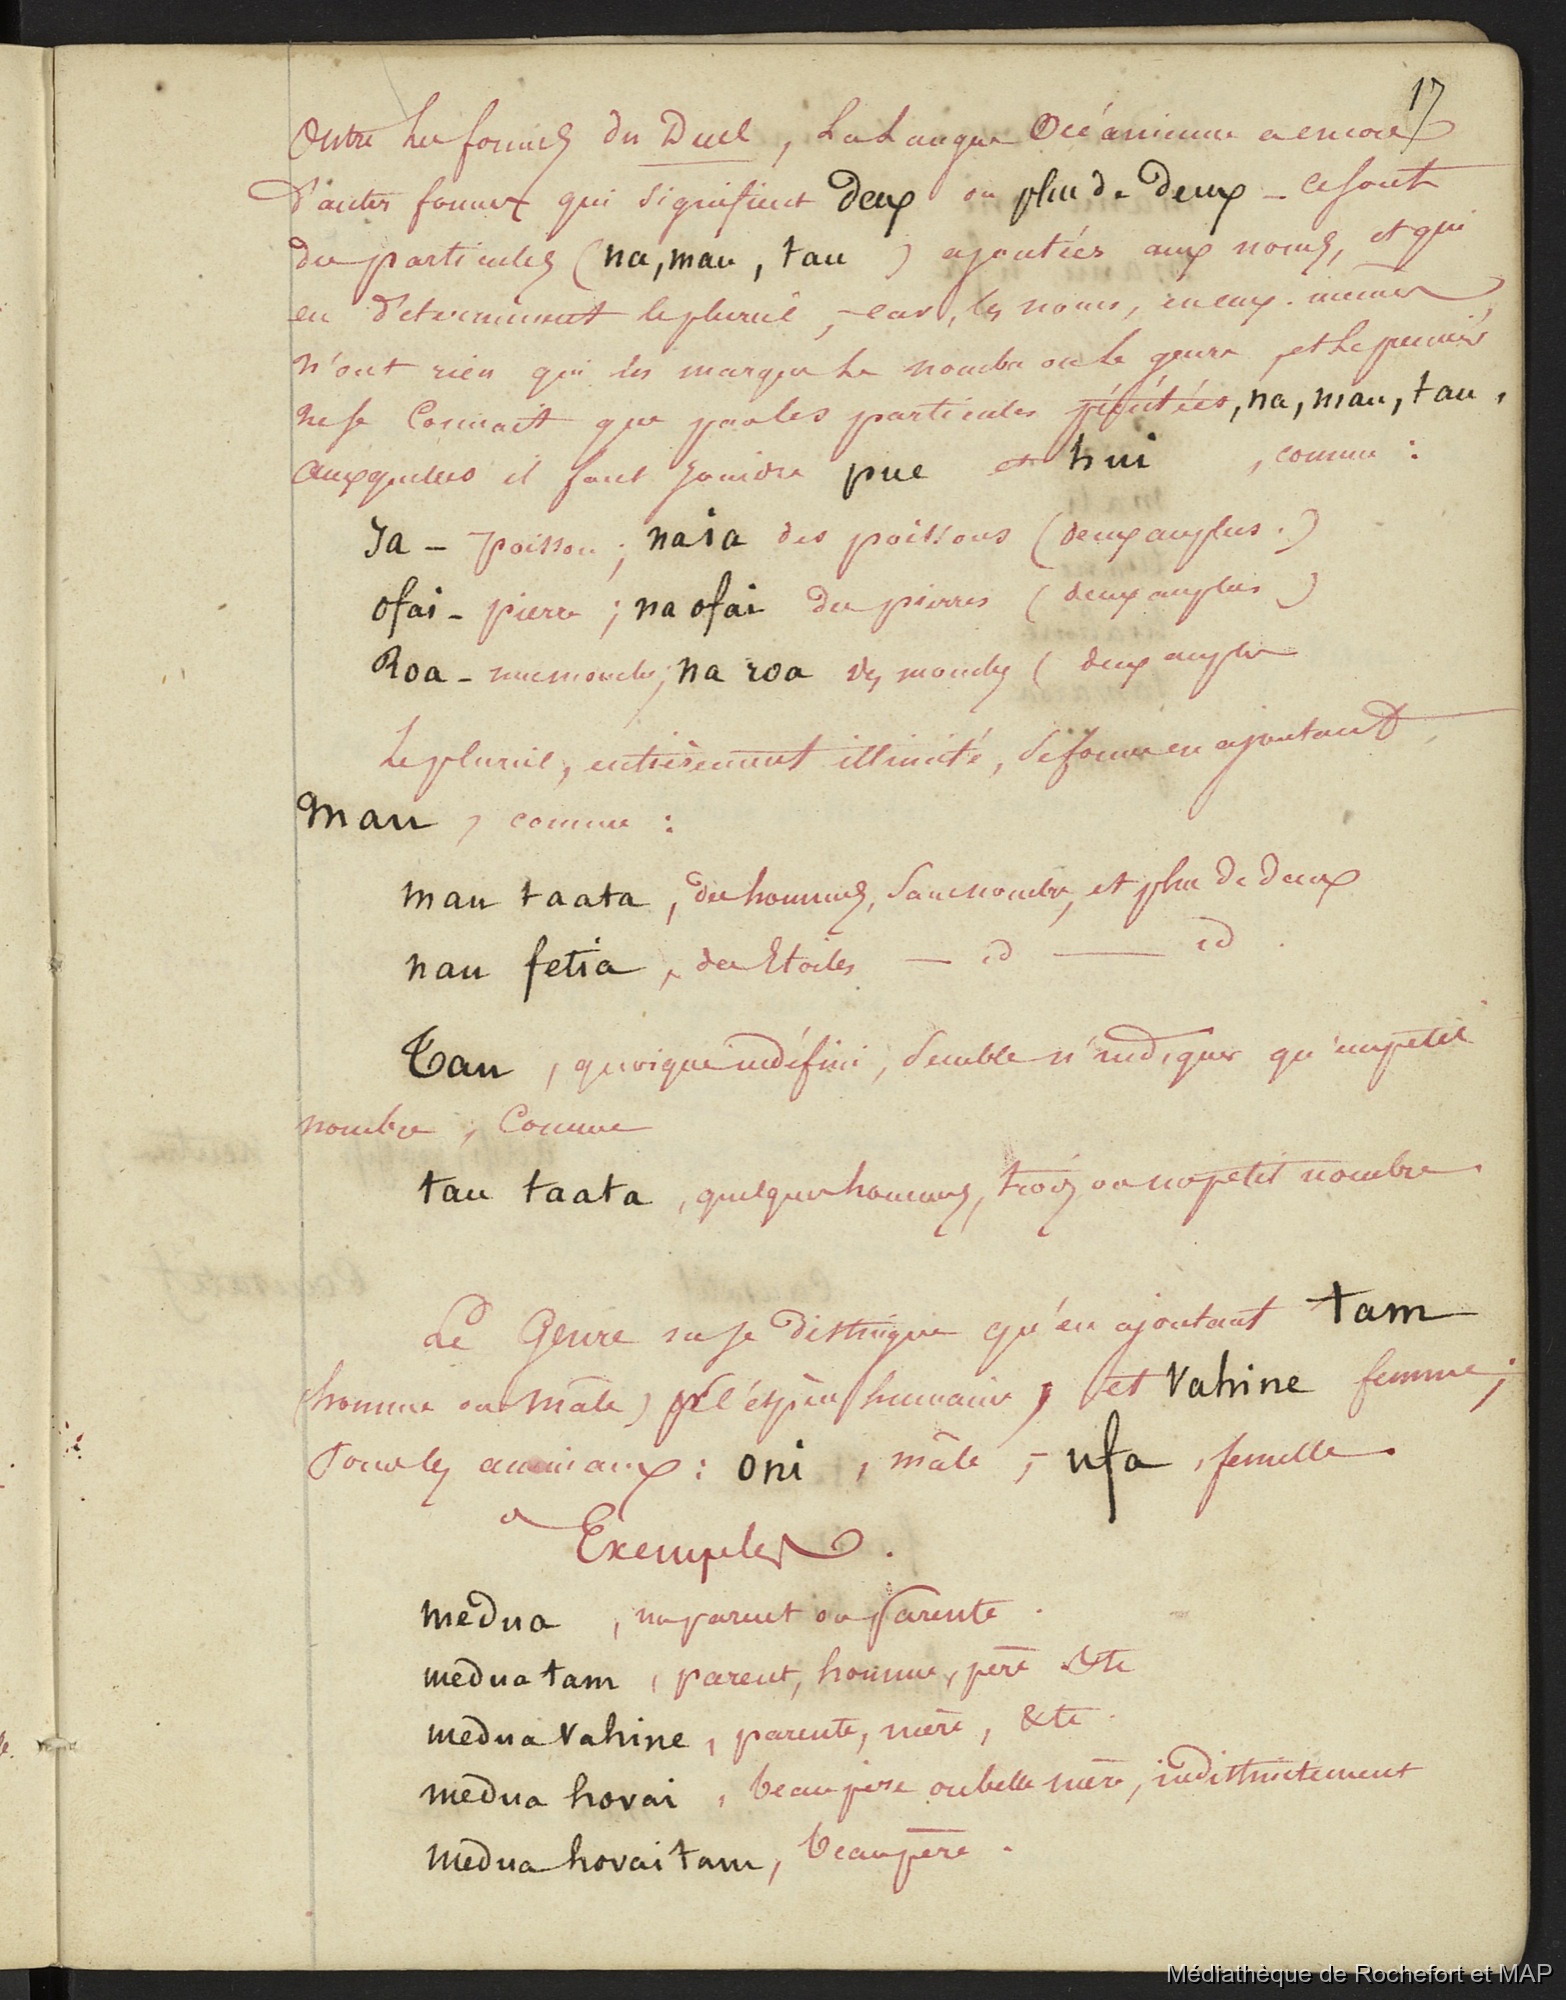 17
Outre les formes du Duel, La Langue Océanienne a encore
d'autres formes qui signifient deux ou plus de deux - ce sont
des particules (na, mau, tau) ajoutées aux noms, et qui
en déterminent le pluriel, - car, les noms, en eux-mêmes
n'ont rien qui les marque le nombre ou le genre, et le premier
ne se connait que par les particules na, mau, tau,
auxquelles il faut joindre pue et hui, comme :
Ia - poisson ; naia des poissons (deux au plus.)
Ofai - pierre ; na ofai des pierres (deux au plus)
Roa - ; na roa des (deux au plus
Le pluriel, entièrement illimité, se forme en ajoutant
Mau, comme :
mau taata, des hommes, sans nombre, et plus de deux
nau fetia, des Etoiles — id — id.
Tau, quoique indéfini, semble n'indiquer qu'un petit
nombre, comme
tau taata, quelques hommes, trois ou un petit nombre.
Le Genre ne se distingue qu'en ajoutant tam
(homme ou mâle) pr l'espèce humaine, et Vahine femme ;
Pour les animaux : oni, mâle, - ufa, femelle.
Exemples.
medua, un parent ou parente.
medua tam, parent, homme, père &te
medua Vahine, parente, mère, &te.
medua hovai, beau père ou belle mère, indistinctement
medua hovai tam, beau père.
Médiathèque de Rochefort et MAP